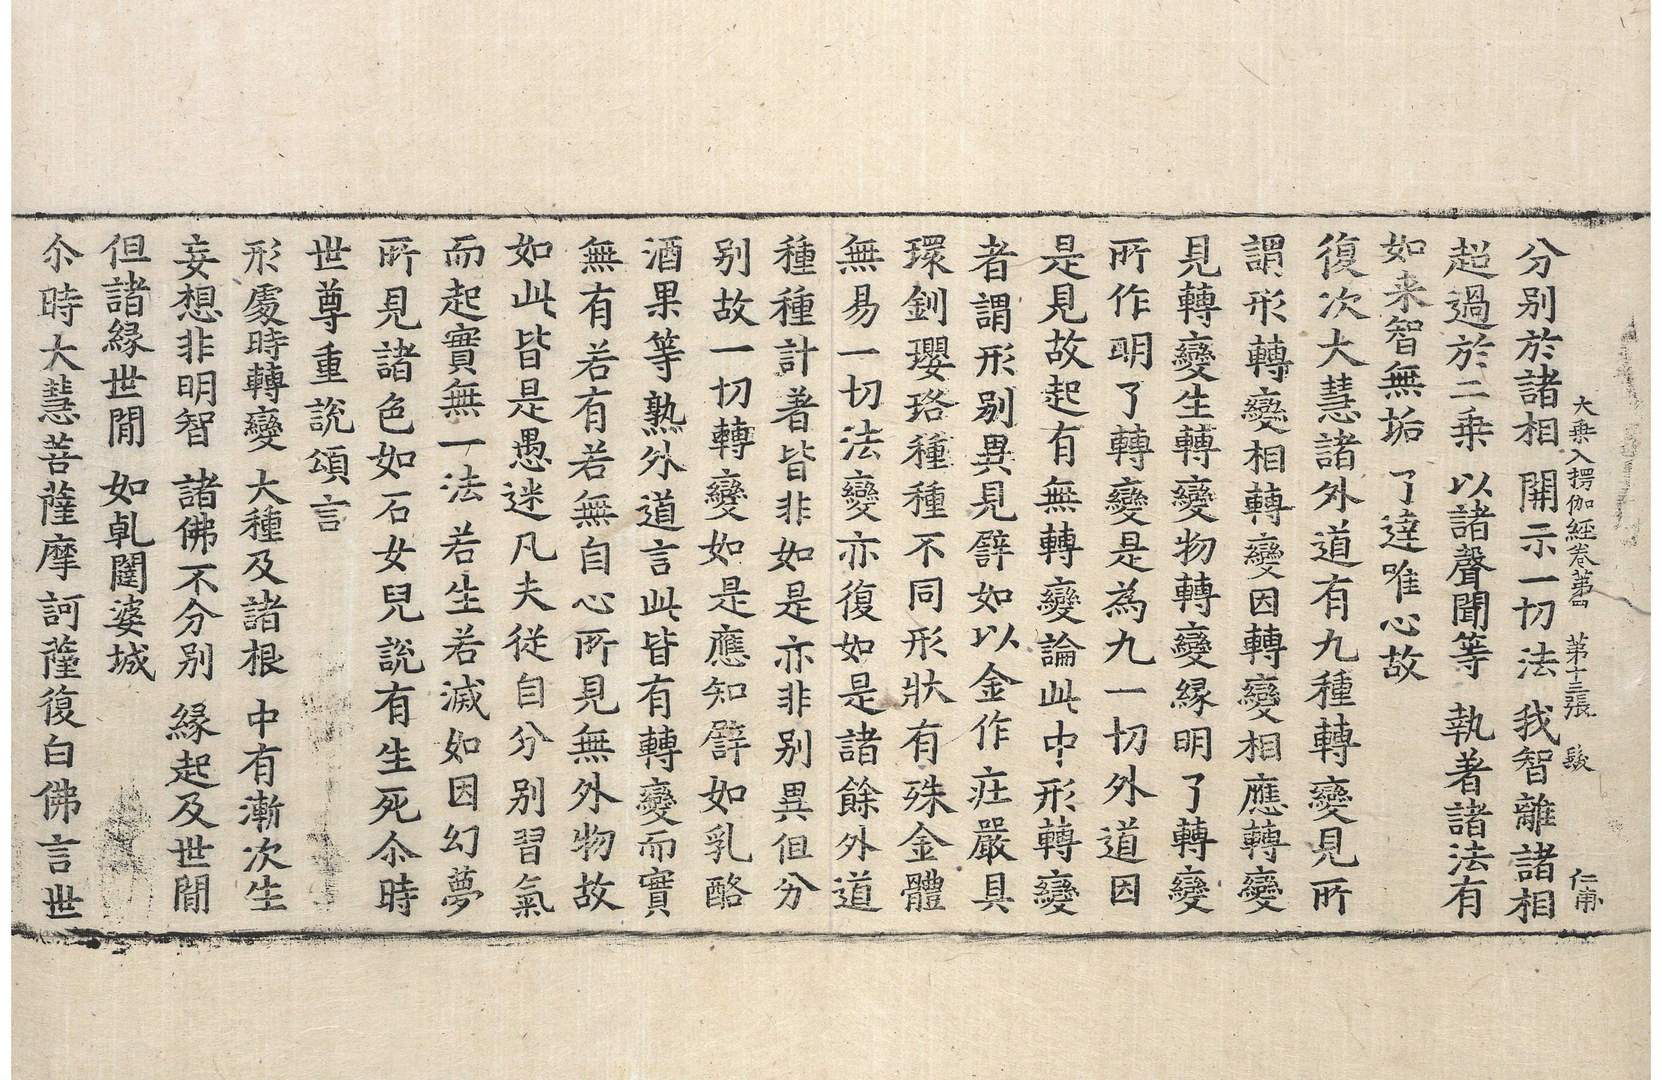 大乗入楞伽經卷第四 第十三張 髮 仁甫
分別於諸相 開示一切法 我智離諸相
超過於二乗 以諸聲聞等 執著諸法有
如来智無垢 了達唯心故
復次大慧諸外道有九種轉變見所
謂形轉變相轉變因轉變相應轉變
見轉變生轉變物轉變縁明了轉變
所作明了轉變是為九一切外道因
是見故起有無轉變論此中形轉變
者謂形別異見譬如以金作莊嚴具
環釧瓔珞種種不同形狀有殊金體
無易一切法變亦復如是諸餘外道
種種計著皆非如是亦非別異但分
別故一切轉變如是應知譬如乳酪
酒果等熟外道言此皆有轉變而實
無有若有若無自心所見無外物故
如此皆是愚迷凡夫從自分別習氣
而起實無一法若生若滅如因幻夢
所見諸色如石女兒說有生死尒時
世尊重說頌言
形處時轉變 大種及諸根 中有漸次生
妄想非明智 諸佛不分別 縁起及世間
但諸縁世間 如乹闥婆城
尒時大慧菩薩摩訶薩復白佛言世